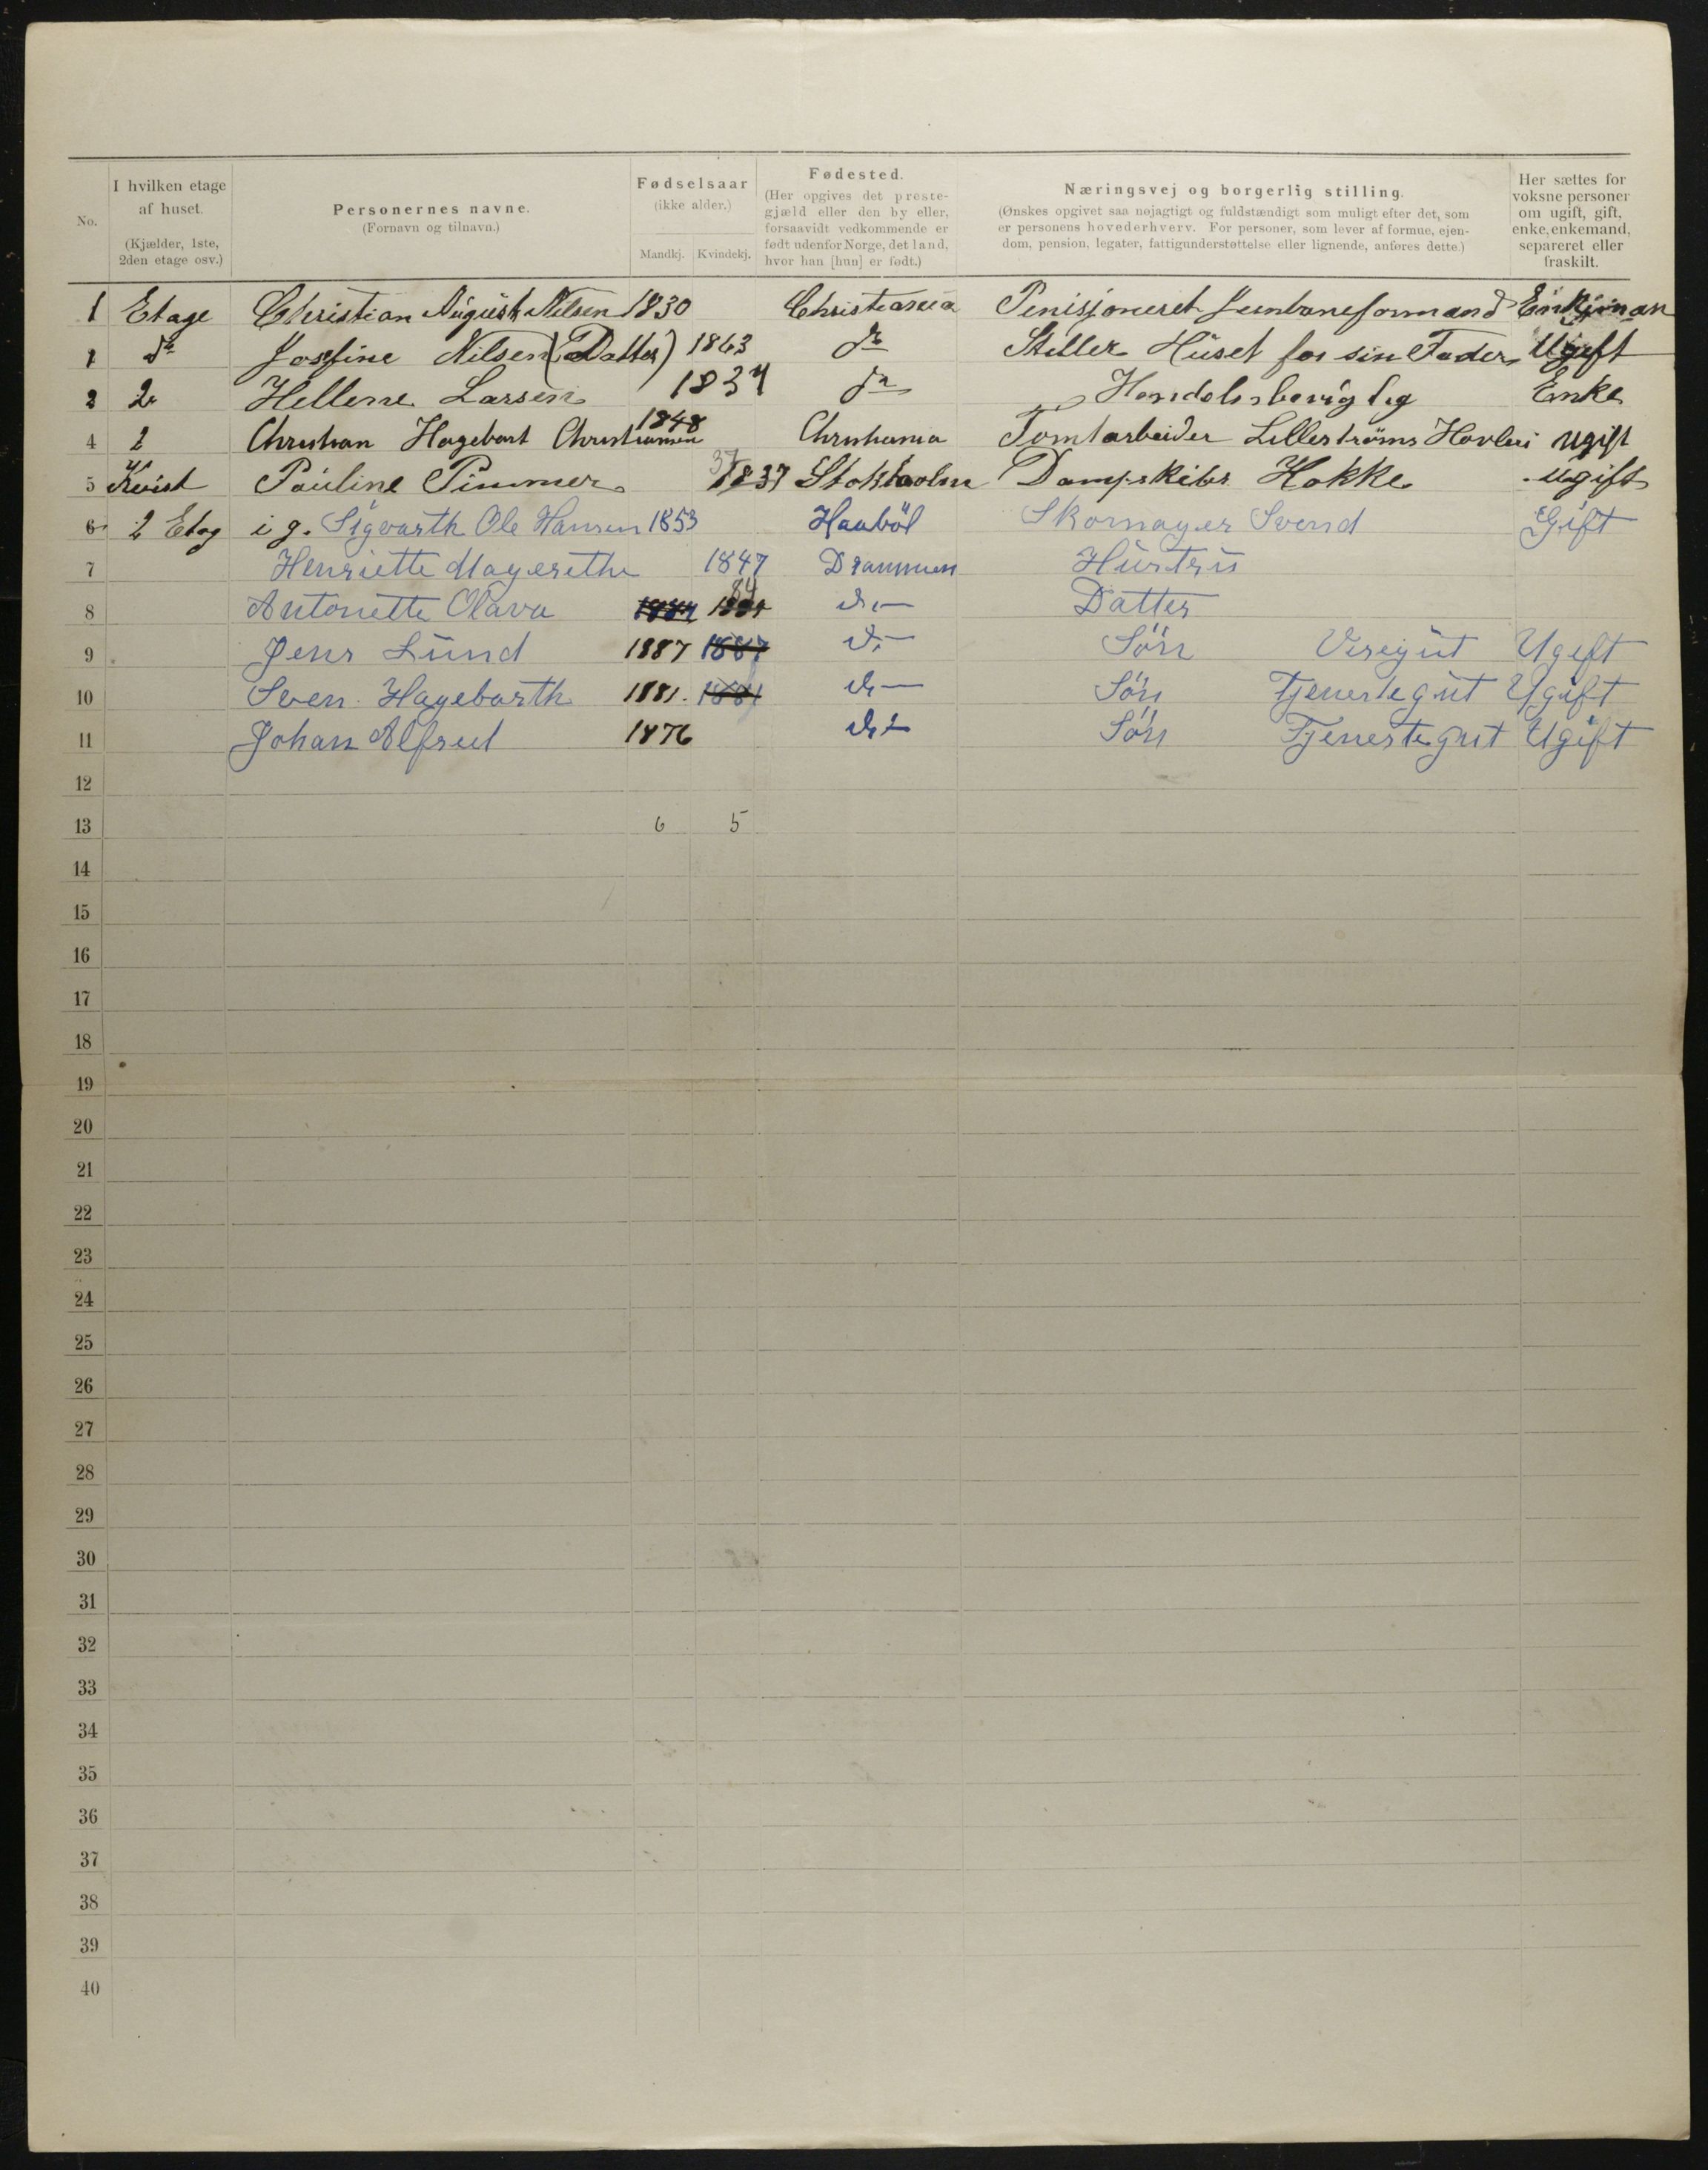 No.
I hvilken etage af huset.
(Kjælder, 1ste, 2den etage osv.)
Personernes navne.
(Fornavn og tilnavn.)
Fødselsaar
(ikke alder.)
Mandkj. Kvindekj.
Fødested.
(Her opgives det prestegjæld eller den by eller, forsaavidt vedkommende er født udenfor Norge, det land, hvor han [hun] er født.)
Næringsvej og borgerlig stilling.
(Ønskes opgivet saa nøjagtigt og fuldstændigt som muligt efter det, som er personens hovederhverv. For personer, som lever af formue, ejendom, pension, legater, fattigunderstøttelse eller lignende, anføres dette.)
Her sættes for voksne personer om ugift, gift, enke, enkemand, separeret eller fraskilt.
1 Etage Christian August Nilsen 1830 Christiania Penisjoneret Jernbaneformand
1 do Josefine Nilsen (Datter) 1863 do Steller Huset for sin Fader Ugift
2 2 Hellene Larsen 1834 do Enke
4 2 Christian Hagebart Christiansen 1848 Christiania Tomtarbeider Lillestrøms Høvleri ugift
5 Kvist Pauline Pimmer 37 1837 Stokholm Dampskibs Kokke ugift
6 2 Etag i g. Sigvarth Ole Hansen 1853 Haabøl Skomager Svend Gift
7 Henriette Magerethe 1847 Drammen Hustru
8 Antonette Olava 1884 84 do Datter
9 Jens Lund 1887 1887 do Søn Visergut Ugift
10 Sven Hagebarth 1881. 1881 do Søn Tjenestegut Ugift
11 Johan Alfred 1876 do Søn Tjenestegut Ugift
12
13 6 5
14
15
16
17
18
19
20
21
22
23
24
25
26
27
28
29
30
31
32
33
34
35
36
37
38
39
40